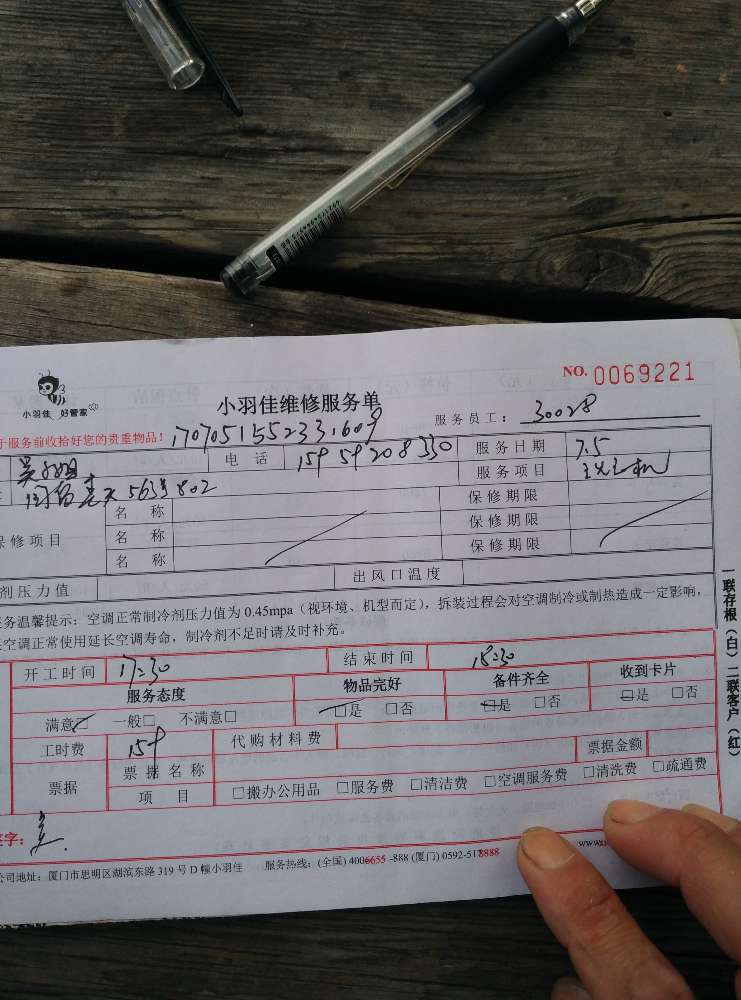 NO. 0069221
小羽佳 好管家
小羽佳维修服务单
服务员工: 30028
于服务前收拾好您的贵重物品! 170705155233609
电 话 15959208330 服务日期 7.5
服务项目
563 802
名 称 保修期限
保修项目 名 称 保修期限
名 称 保修期限
剂压力值 出风口温度
服务温馨提示: 空调正常制冷剂压力值为 0.45mpa (视环境、机型而定), 拆装过程会对空调制冷或制热造成一定影响,
空调正常使用延长空调寿命, 制冷剂不足时请及时补充。
开工时间 17:30 结束时间 18:30
服务态度 物品完好 备件齐全 收到卡片
满意□ 一般□ 不满意□ □是 □否 □是 □否 □是 □否
工时费 159 代购材料费 票据金额
票据 票据名称
项 目 □搬办公用品 □服务费 □清洁费 □空调服务费 □清洗费 □疏通费
签字:
公司地址: 厦门市思明区湖滨东路 319 号 D 幢小羽佳 服务热线: (全国) 4006655 -888 (厦门) 0592-518888
一联存根(白) 二联客户(红)